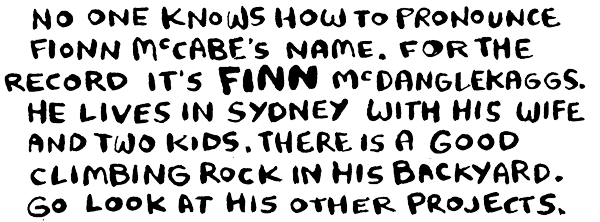 NO ONE KNOWS HOW TO PRONOUNCE
FIONN McCABE'S NAME. FOR THE
RECORD IT'S FINN McDANGLEKAGGS.
HE LIVES IN SYDNEY WITH HIS WIFE
AND TWO KIDS. THERE IS A GOOD
CLIMBING ROCK IN HIS BACKYARD.
GO LOOK AT HIS OTHER PROJECTS.